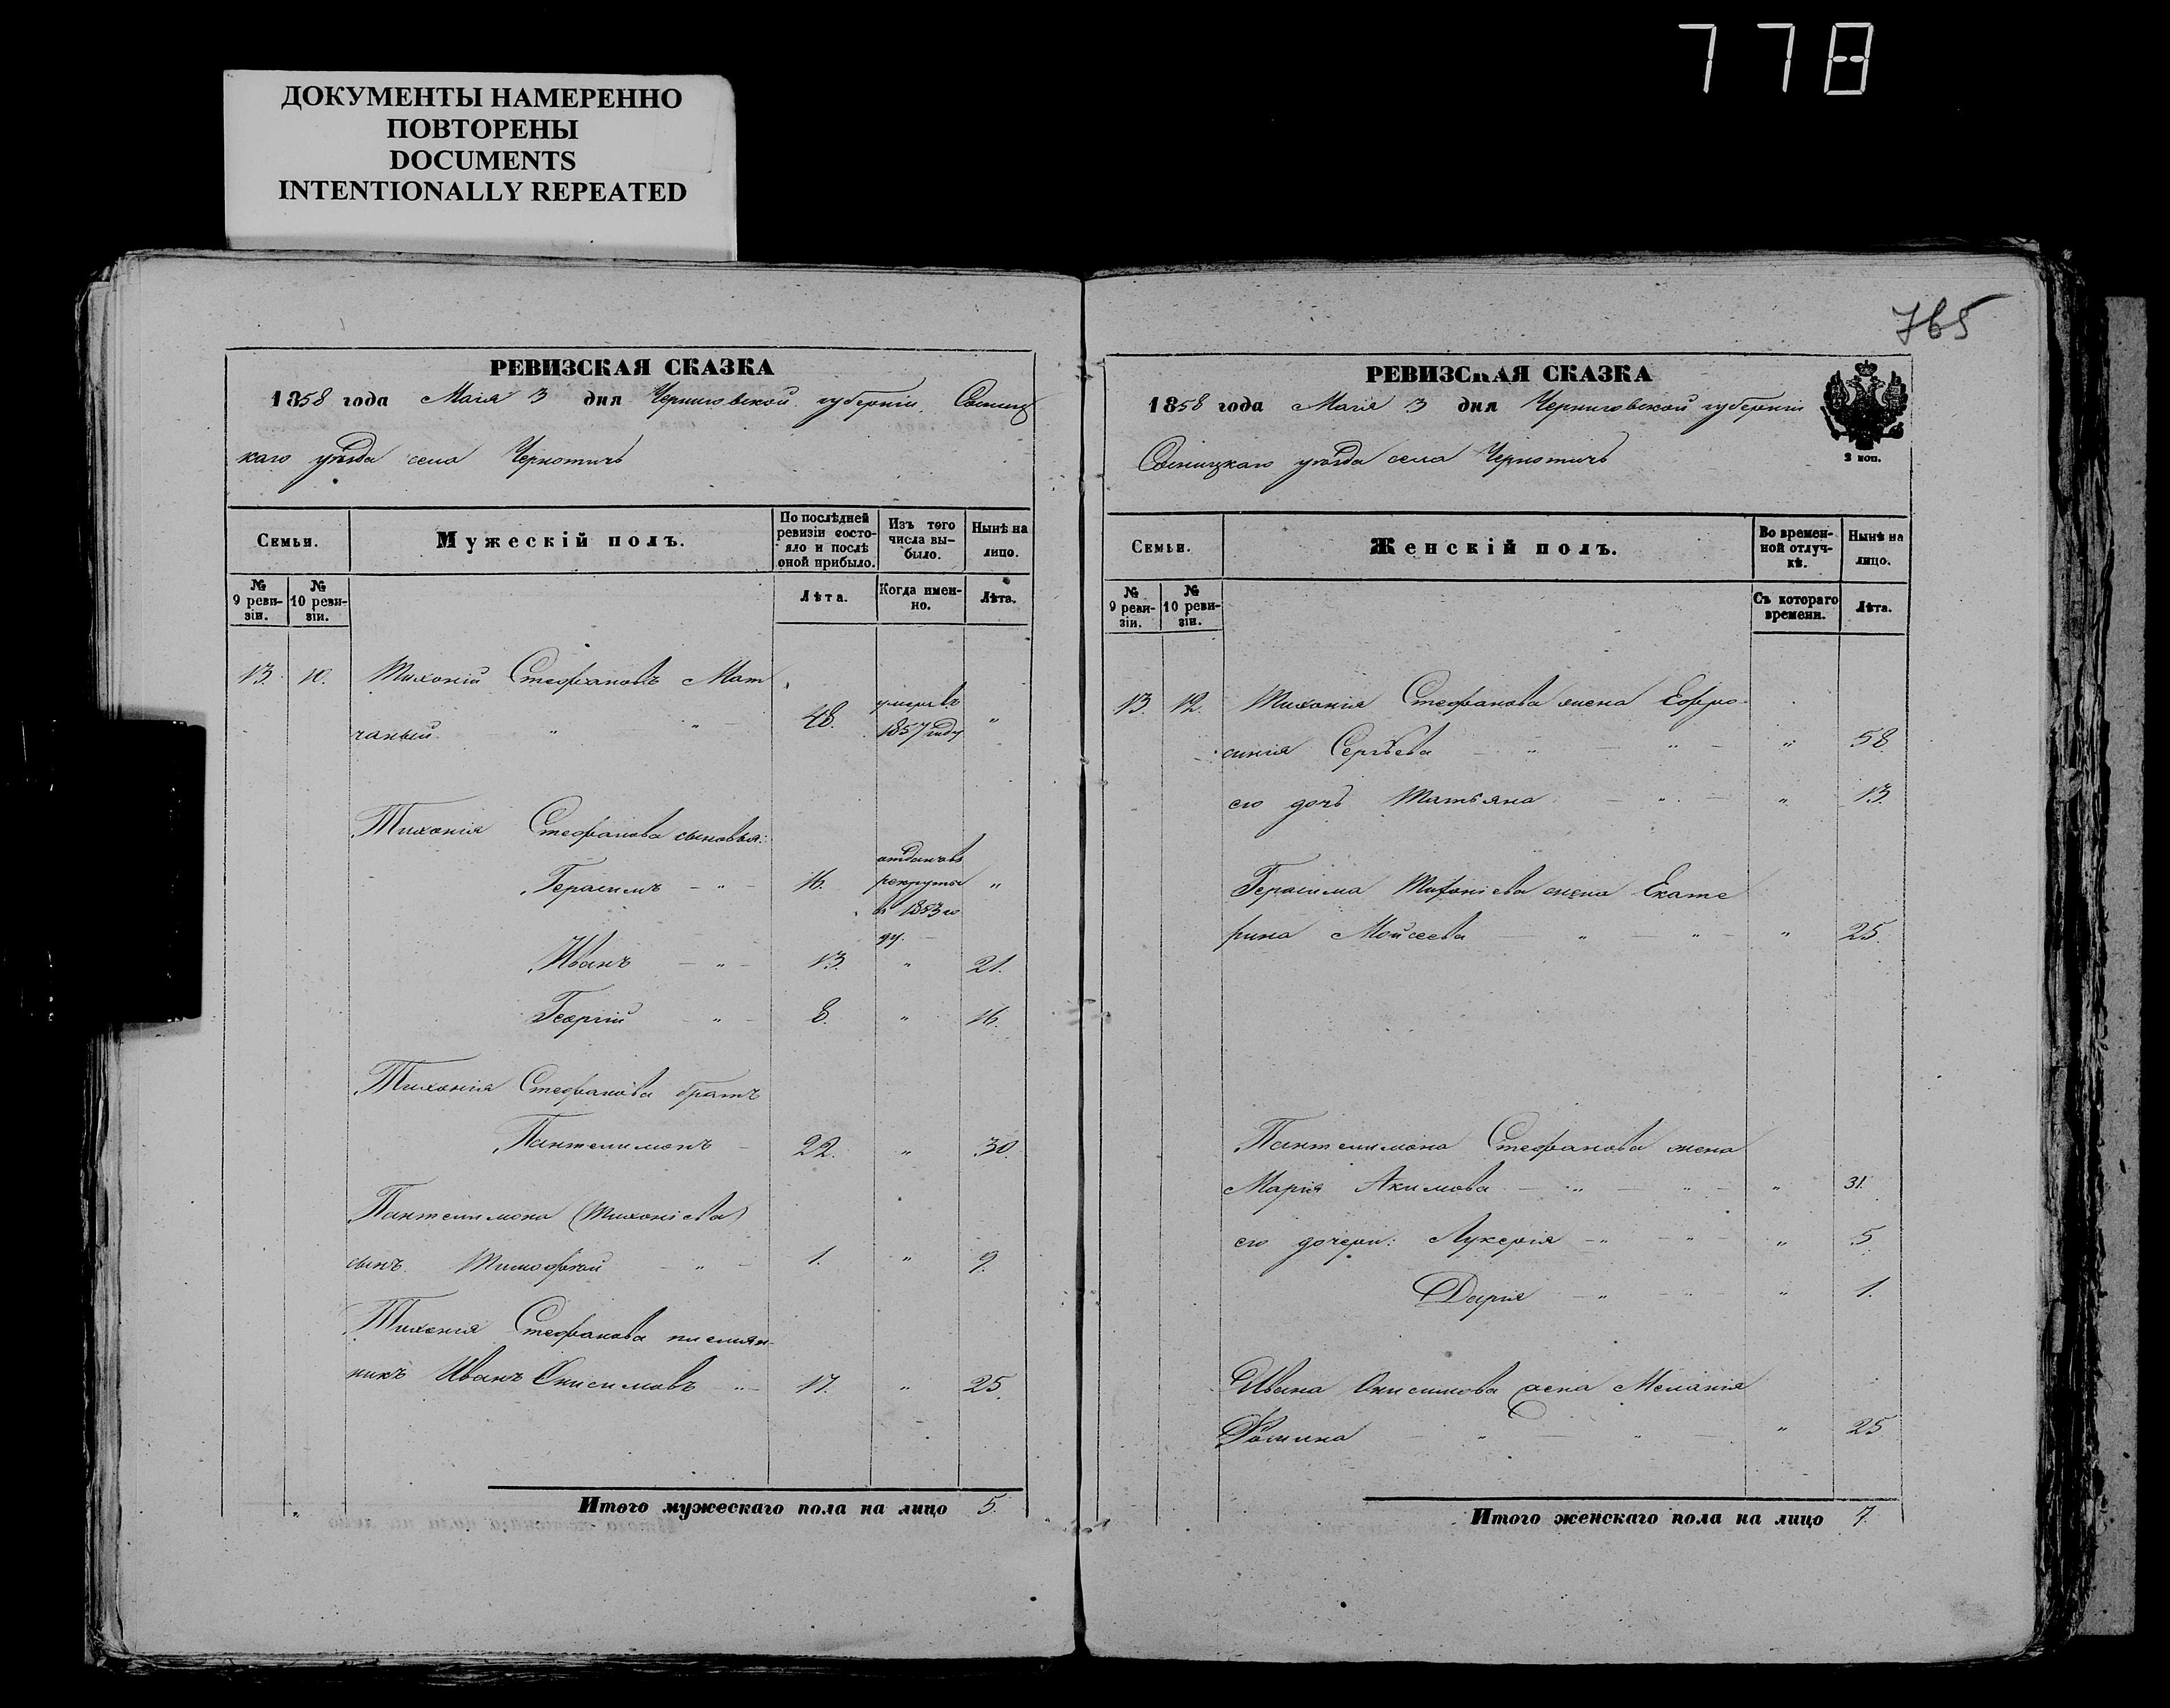 778
ДОКУМЕНТЫ НАМЕРЕННО
ПОВТОРЕНЫ
DOCUMENTS
INTENTIONALLY REPEATED
РЕВИЗСКАЯ СКАЗКА
1858 года Маія 3 дня Черниговской губерніи, Сосниц
каго уѣзда села Чернотичъ
Семьи.
Мужескій полъ.
По послѣдней ревизіи состояло и послѣ оной прибыло.
Изъ того числа выбыло.
Нынѣ на лицо.
№ 9 ревизіи.
№ 10 ревизіи.
Лѣта.
Когда именно.
Лѣта.
13. Тихоній Стефановъ Мат
чаный " " 48. умеръ въ 1857 году "
Тихонія Стефанова сыновья:
Герасимъ - " - 16. отданъ въ рекруты в 1853 го ду. "
Иванъ - " - 13. " 21.
Георгій " - 8. " 16.
Тихонія Стефанова братъ
Пантелимонъ - 22. " 30.
Пантелимона (Тихоніева)
сынъ Тимофей - " - 1. " 9.
Тихонія Стефанова племян-
никъ Иванъ Онисимовъ " 17. " 25.
Итого мужескаго пола на лицо 5.
765
РЕВИЗСКАЯ СКАЗКА
1858 года Маія 3 дня Черниговской губерніи
2 коп.
Сосницкаго уѣзда села Чернотичъ
Семьи.
Женскій полъ.
Во временной отлучкѣ.
Нынѣ на лицо.
№ 9 ревизіи.
№ 10 ревизіи.
Съ котораго времени.
Лѣта.
13. 12. Тихонія Стефанова жена Ефро-
синія Сергѣева - " - " - " 58.
его дочь Татьяна - " - " 13.
Герасима Тихоніева жена Екате
рина Мойсеева - " - " - " 25.
Пантелимона Стефанова жена
Марія Акимова - " - " - " 31.
его дочери: Лукерія - " - " - " 5.
Дарія - " - " - " 1.
Ивана Онисимова жена Меланія
Фомина - " - " " 25
Итого женскаго пола на лицо 7.